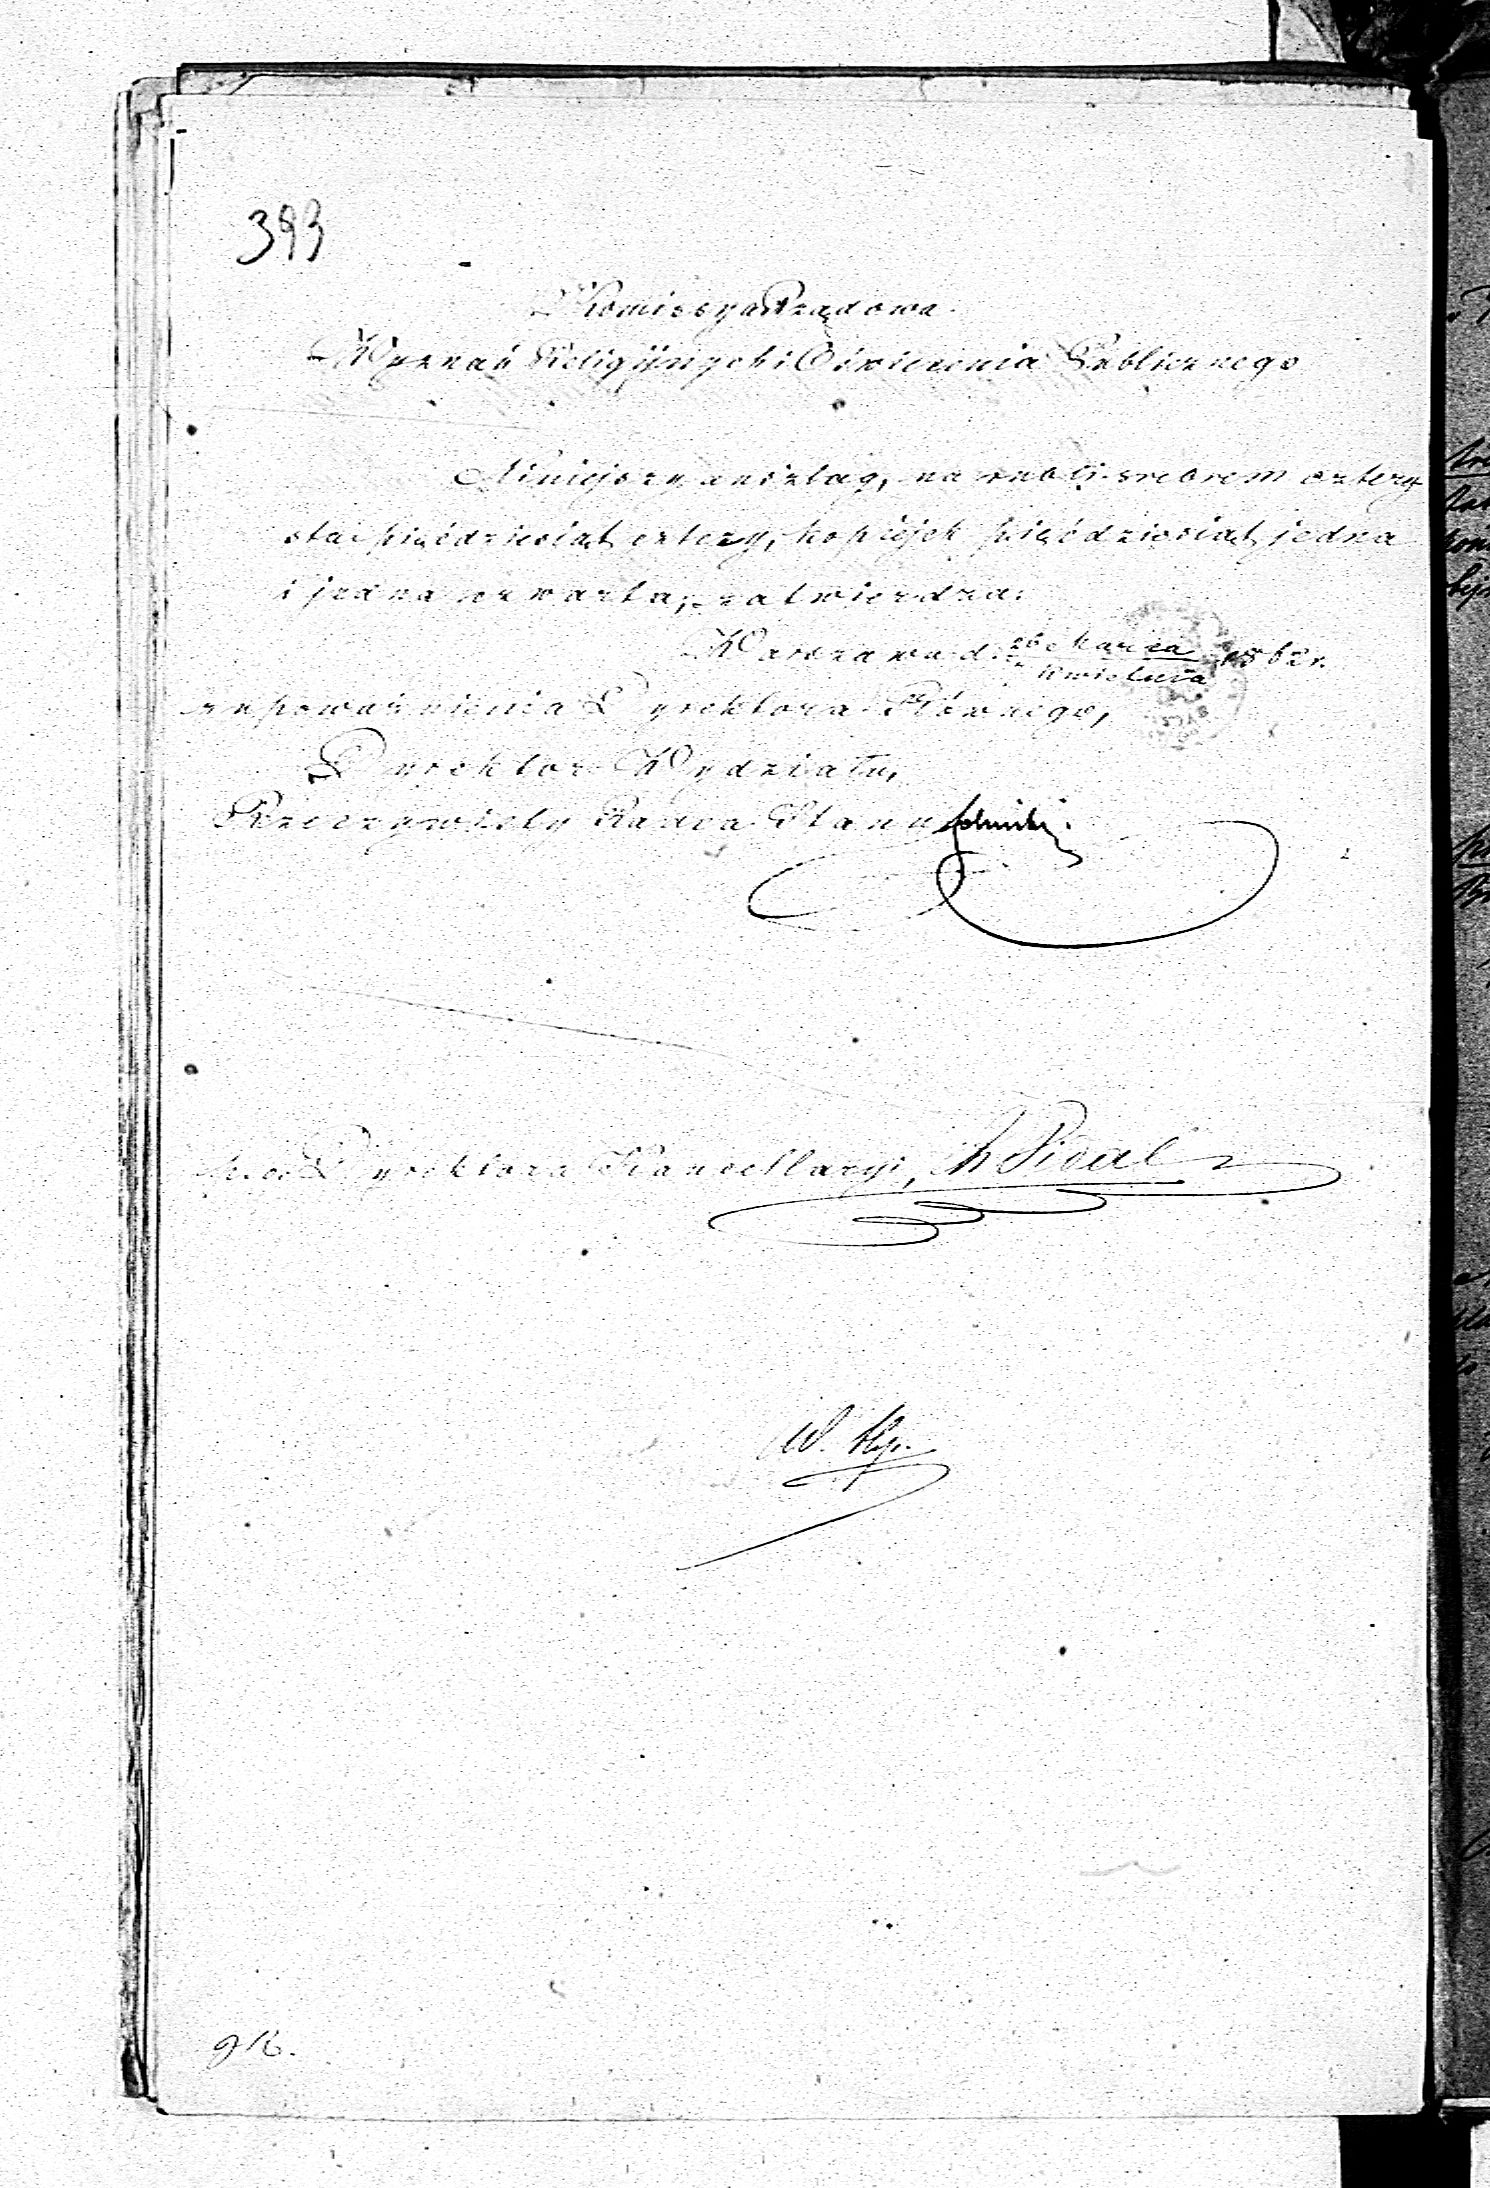 393
Kommissya Rządowa
Wyznań Religijnych i Oświecenia Publicznego
Niniejszy anszlag, na rubli srebrem czterysta
pięćdziesiąt cztery, kopiejek pięćdziesiąt jedna
i jedna czwarta, zatwierdza.
Warszawa d. Marca / Kwietnia 1862 r.
z upoważnienia Dyrektora Głównego,
Dyrektor Wydziału,
Rzeczywisty Radca Stanu
Dyrektora Kancellaryi,